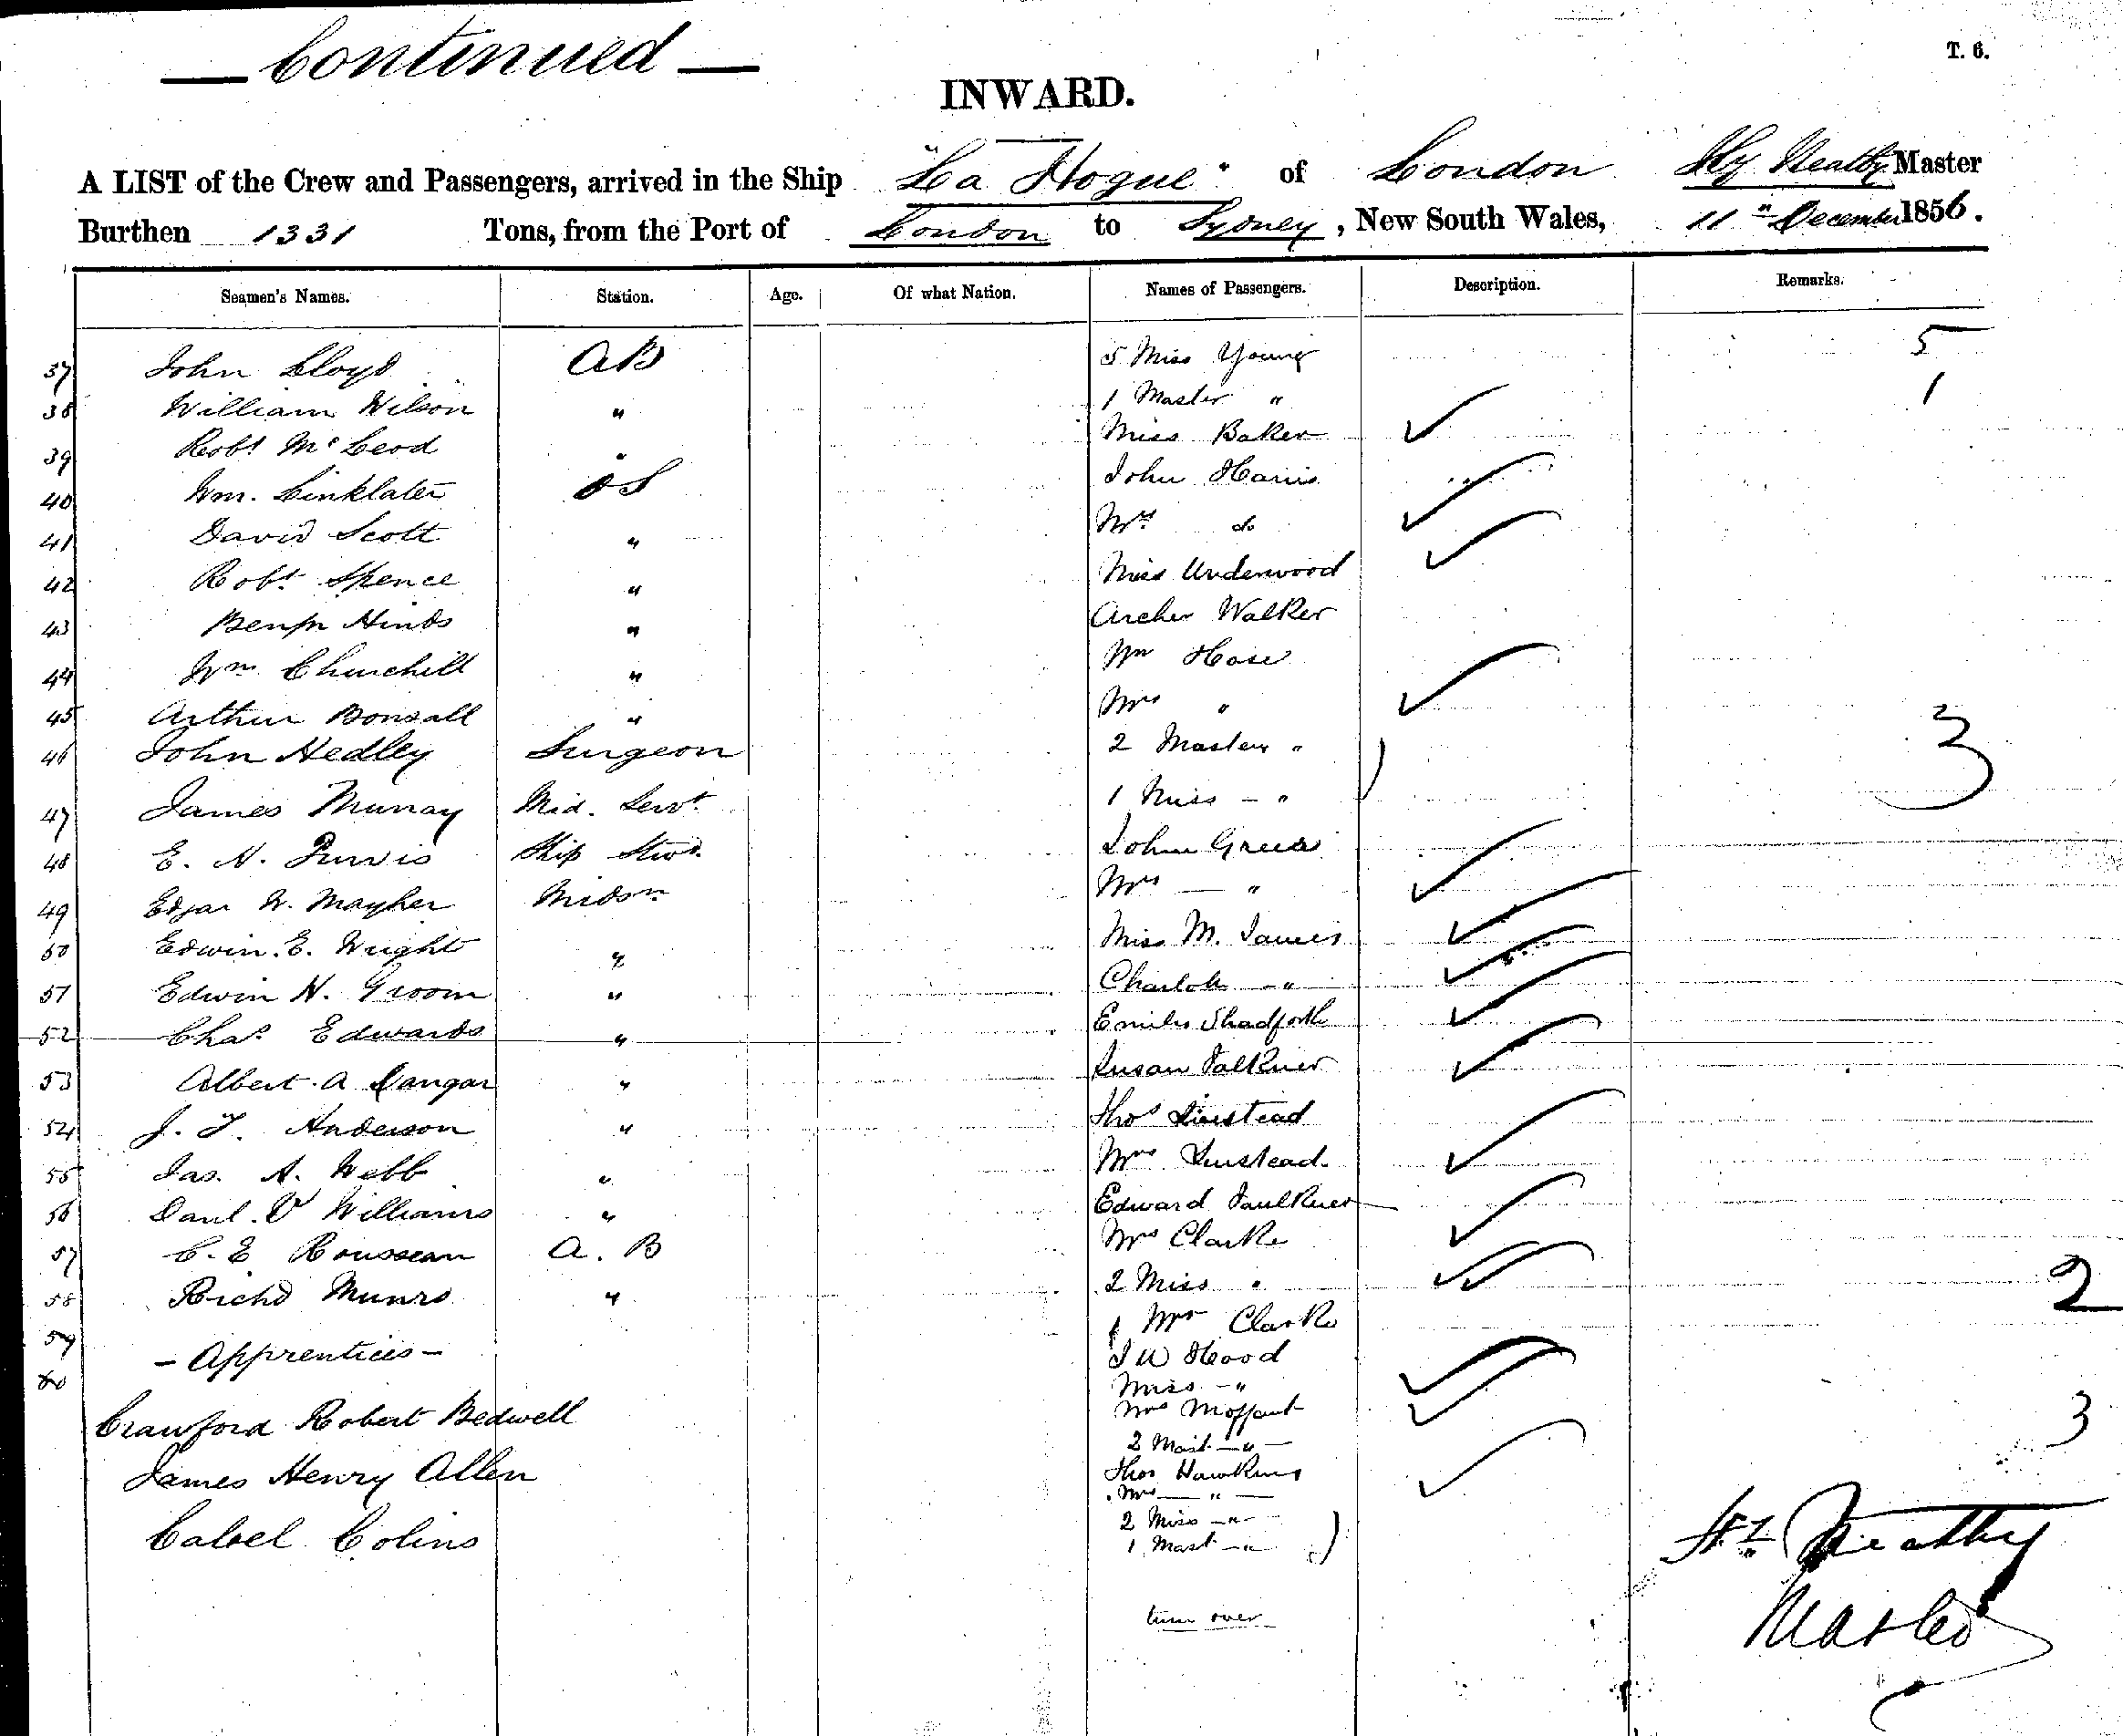 — Continued —
T. 6.
INWARD.
A LIST of the Crew and Passengers, arrived in the Ship "La Hogue" of London Hy Neatby Master
Burthen 1331 Tons, from the Port of London to Sydney, New South Wales, 11" December 1856.
Seamen's Names. Station. Age. Of what Nation. Names of Passengers. Description. Remarks.
37 John Lloyd AB 5 Miss Young 5
38 William Wilson " 1 Master " 1
39 Robt McLeod " Miss Baker
40 Wm. Linklater OS John Harris
41 David Scott " Mrs do
42 Robt Spence " Miss Underwood
43 Benjn Hinds " Archer Walker
44 Wm Churchill " Wm Hose
45 Arthur Bonsall " Mrs "
46 John Hedley Surgeon 2 Masters " 3
47 James Murray Mid. Servt 1 Miss - "
48 E. N. Purvis Ship Stwd. John Green
49 Edgar W. Mayher Midsn Mrs — "
50 Edwin. E. Wright " Miss M. James
51 Edwin H. Groom " - "
52 Chas Edwards " Shadforth
53 Albert. A Dangar " Susan Falkner
54 J. T. Anderson " Thos Linstead
55 Jas. A. Webb " Mrs Linstead.
56 Danl. V Williams " Edward Faulkner
57 C. E Rousseau A. B Mrs Clarke
58 Richd Munro " 2 Miss " 2
59 1 Mrs Clarke
- Apprentices - J W Hood
60 Miss - "
Crawford Robert Bedwell Mrs Moffant 3
2 Mast - " -
James Henry Allen Thos Hawkins
Mrs — " —
2 Miss - " -
Colins 1 Mast - "
Hy Neatby
Master
turn over